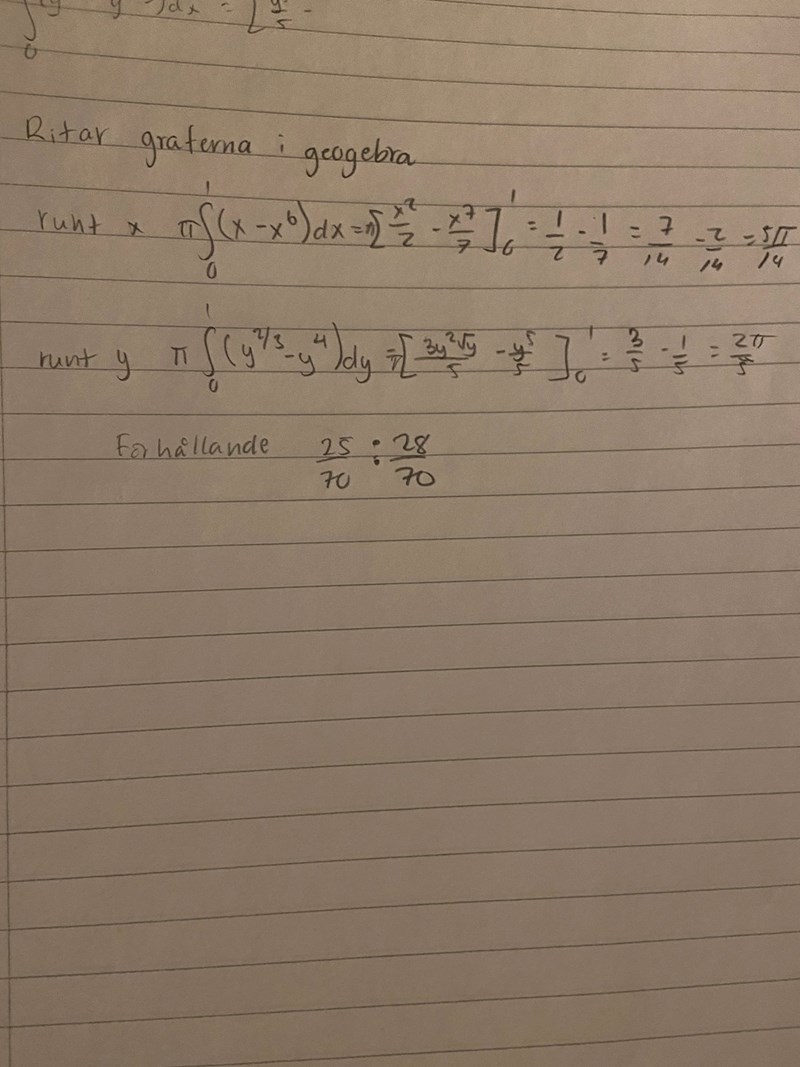 ∫₀ y )dx = [ y/5 -
Ritar graferna i geogebra
runt x π∫₀¹(x - x⁶)dx = π[x²/2 - x⁷/7]₀¹ = 1/2 - 1/7 = 7/14 - 2/14 = 5π/14
runt y π∫₀¹(y^(2/3) - y⁴)dy = π[3y²√y/5 - y⁵/5]₀¹ = 3/5 - 1/5 = 2π/5
Förhållande 25/70 : 28/70